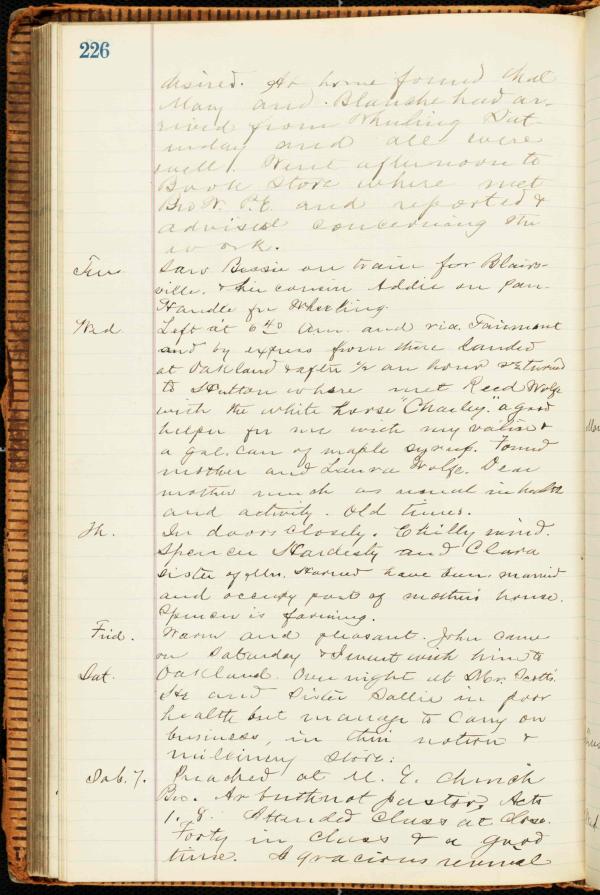 226
desired. At home found that
Mary and Blanche had ar-
rived from Wheeling Sat-
urday and all were
well. Went afternoon to
Book Store where met
Bro W. P.E. and reported &
advised concerning the
work.
Tues Saw Bessie on train for Blairs-
ville. & her cousin Addie on Pan-
Handle for Wheeling.
Wed Left at 6 40 Am. and via Fairmont
and by express from there landed
at Oakland & after ½ an hour returned
to Hutton where met Reed Wolfe
with the white horse "Charley." a good
helper for me with my valise &
a gal. can of maple syrup. Found
mother and Laura Wolfe. Dear
mother much as usual in health
and activity. Old times.
Th. In doors closely. Chilly wind.
Spencer Hardesty and Clara
sister of Mrs. Harned have been married
and occupy part of mother's house.
Spencer is farming.
Frid. Warm and pleasant. John came
on Saturday & I went with him to
Sat. Oakland. Over night at Mr. Scott's
He and Sister Sallie in poor
health but manage to carry on
business, in their notion &
millinery store.
Sab. 7. Preached at M. E. Church
Bro. Arbuthnot pastor, Acts
1. 8. Attended Class at close.
Forty in class & a good
time. A gracious revival